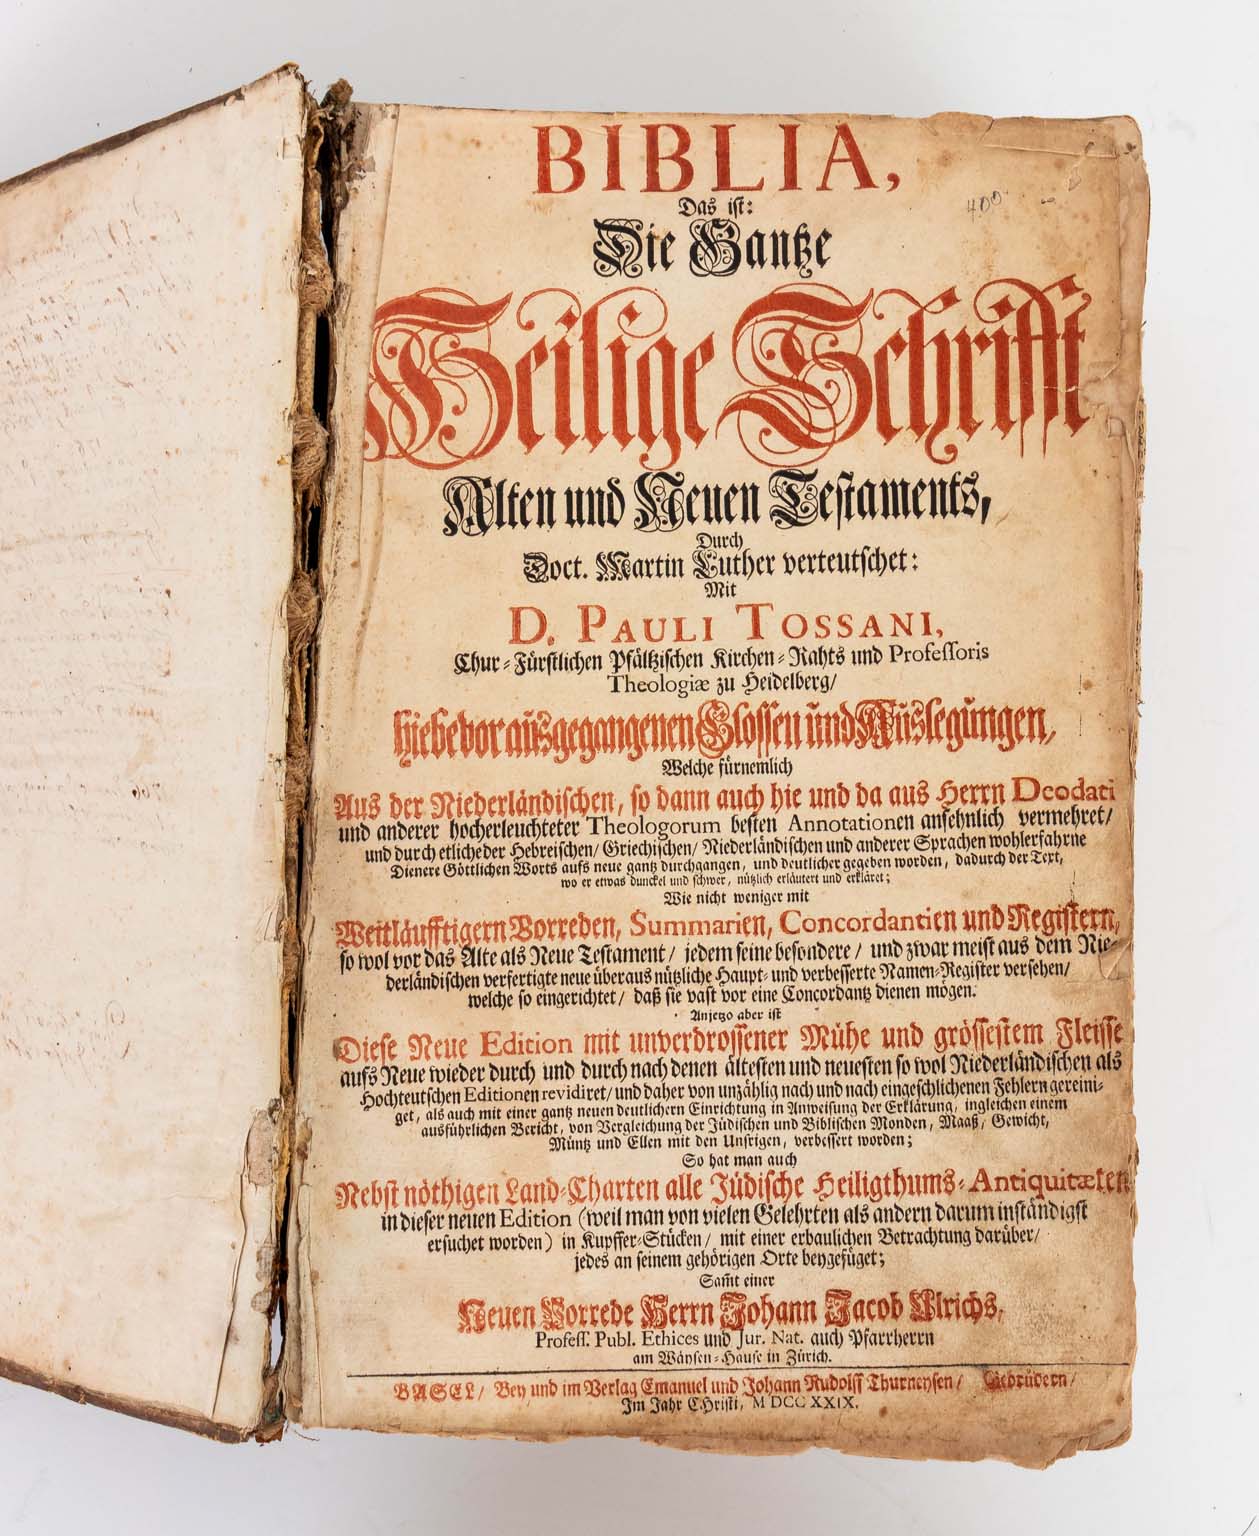 BIBLIA,
400
Das ist:
Die Gantze
Heilige Schrifft
Alten und Neuen Testaments,
Durch
Doct. Martin Luther verteutschet:
Mit
D. PAULI TOSSANI,
Chur-Fürstlichen Pfältzischen Kirchen-Rahts und Professoris
Theologiæ zu Heidelberg/
hiebevor ausgegangenen Glossen und Auslegungen,
Welche fürnemlich
Aus der Niederländischen, so dann auch hie und da aus Herrn Deodati
und anderer hocherleuchteter Theologorum besten Annotationen ansehnlich vermehret/
und durch etliche der Hebreischen/ Griechischen/ Niederländischen und anderer Sprachen wohlerfahrne
Dienere Göttlichen Worts aufs neue gantz durchgangen, und deutlicher gegeben worden, dadurch der Text,
wo er etwas dunckel und schwer, nützlich erläutert und erkläret;
Wie nicht weniger mit
Weitläufftigern Vorreden, Summarien, Concordantien und Registern,
so wol vor das Alte als Neue Testament/ jedem seine besondere/ und zwar meist aus dem Nie-
derländischen verfertigte neue überaus nützliche Haupt- und verbesserte Namen-Register versehen/
welche so eingerichtet/ daß sie vast vor eine Concordantz dienen mögen.
Anjetzo aber ist
Diese Neue Edition mit unverdrossener Mühe und grössestem Fleisse
aufs Neue wieder durch und durch nach denen ältesten und neuesten so wol Niederländischen als
Hochteutschen Editionen revidiret/ und daher von unzählig nach und nach eingeschlichenen Fehlern gereini-
get, als auch mit einer gantz neuen deutlichern Einrichtung in Anweisung der Erklärung, ingleichen einem
ausführlichen Bericht, von Vergleichung der Jüdischen und Biblischen Monden, Maaß, Gewicht,
Müntz und Ellen mit den Unsrigen, verbessert worden;
So hat man auch
Nebst nöthigen Land-Charten alle Jüdische Heiligthums-Antiquitæten
in dieser neuen Edition (weil man von vielen Gelehrten als andern darum inständigst
ersuchet worden) in Kupffer-Stücken/ mit einer erbaulichen Betrachtung darüber/
jedes an seinem gehörigen Orte beygefüget;
Samt einer
Neuen Vorrede Herrn Johann Jacob Ulrichs,
Profess. Publ. Ethices und Jur. Nat. auch Pfarrherrn
am Wäysen-Hause in Zürich.
BASEL/ Bey und im Verlag Emanuel und Johann Rudolff Thurneysen/ Gebrüdern/
Im Jahr CHristi, MDCCXXIX.